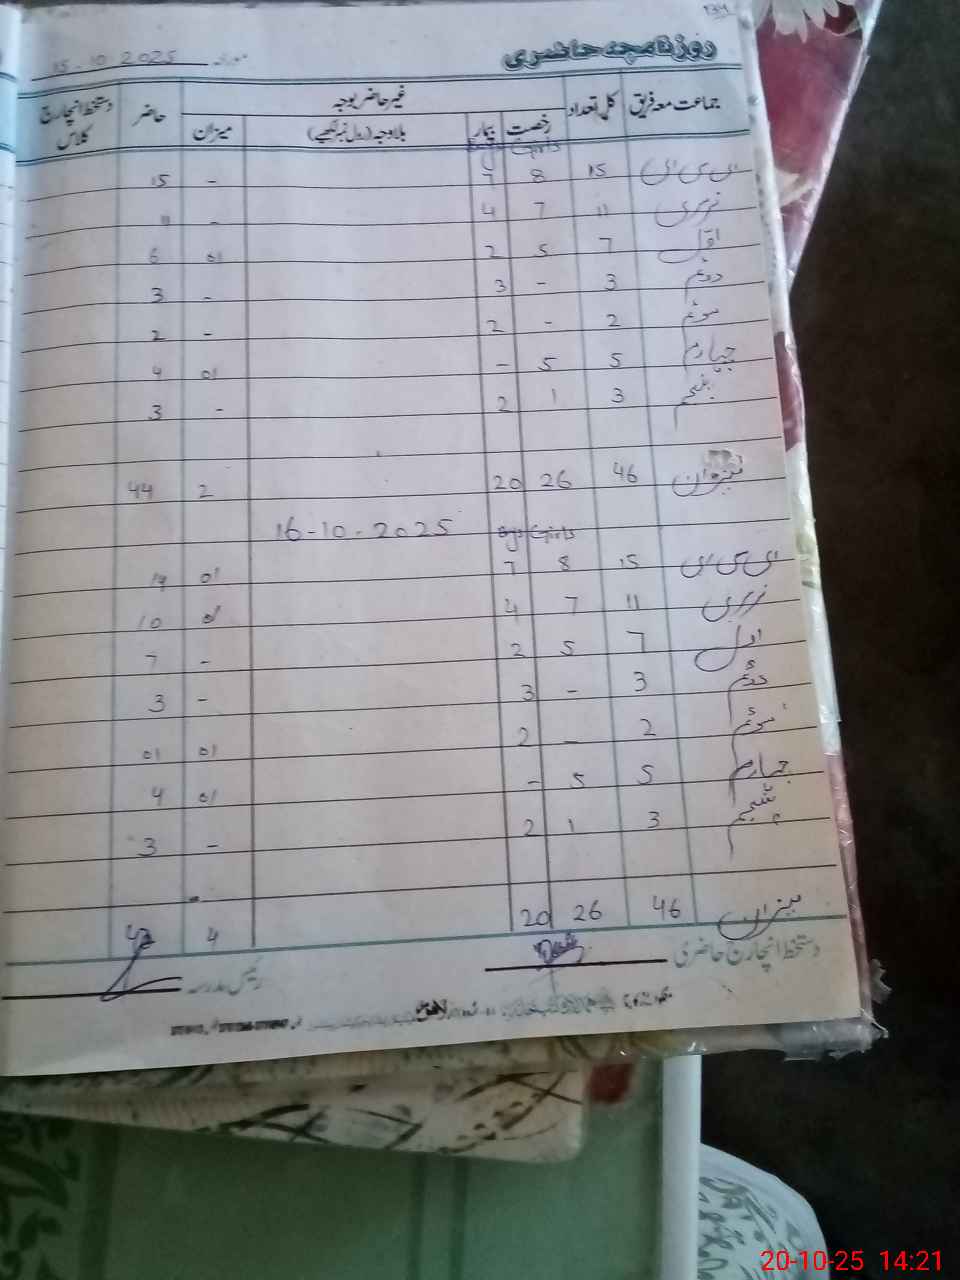 134
روزنامچہ حاضری
مورخہ 15-10-2025
جماعت معہ فریق کل تعداد غیر حاضر بوجہ حاضر دستخط انچارج کلاس
رخصت بیمار بلاوجہ (رول نمبر لکھیے) میزان
Girls Boys
ای سی ای 15 8 7 - 15
نرسری 11 7 4 - 11
اول 7 5 2 01 6
دوئم 3 - 3 - 3
سوئم 2 - 2 - 2
چہارم 5 5 - 01 4
پنجم 3 1 2 - 3
میزان 46 26 20 2 44
Girls Boys 16-10-2025
ای سی ای 15 8 7 01 14
نرسری 11 7 4 01 10
اول 7 5 2 - 7
دوئم 3 - 3 - 3
سوئم 2 - 2 01 01
چہارم 5 5 - 01 4
پنجم 3 1 2 - 3
میزان 46 26 20 4 42
دستخط انچارج حاضری رئیس مدرسہ
20-10-25 14:21